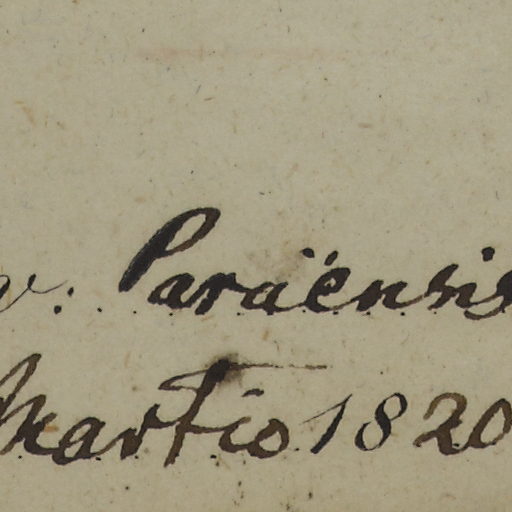 v. Paraënsis
Martio 1820